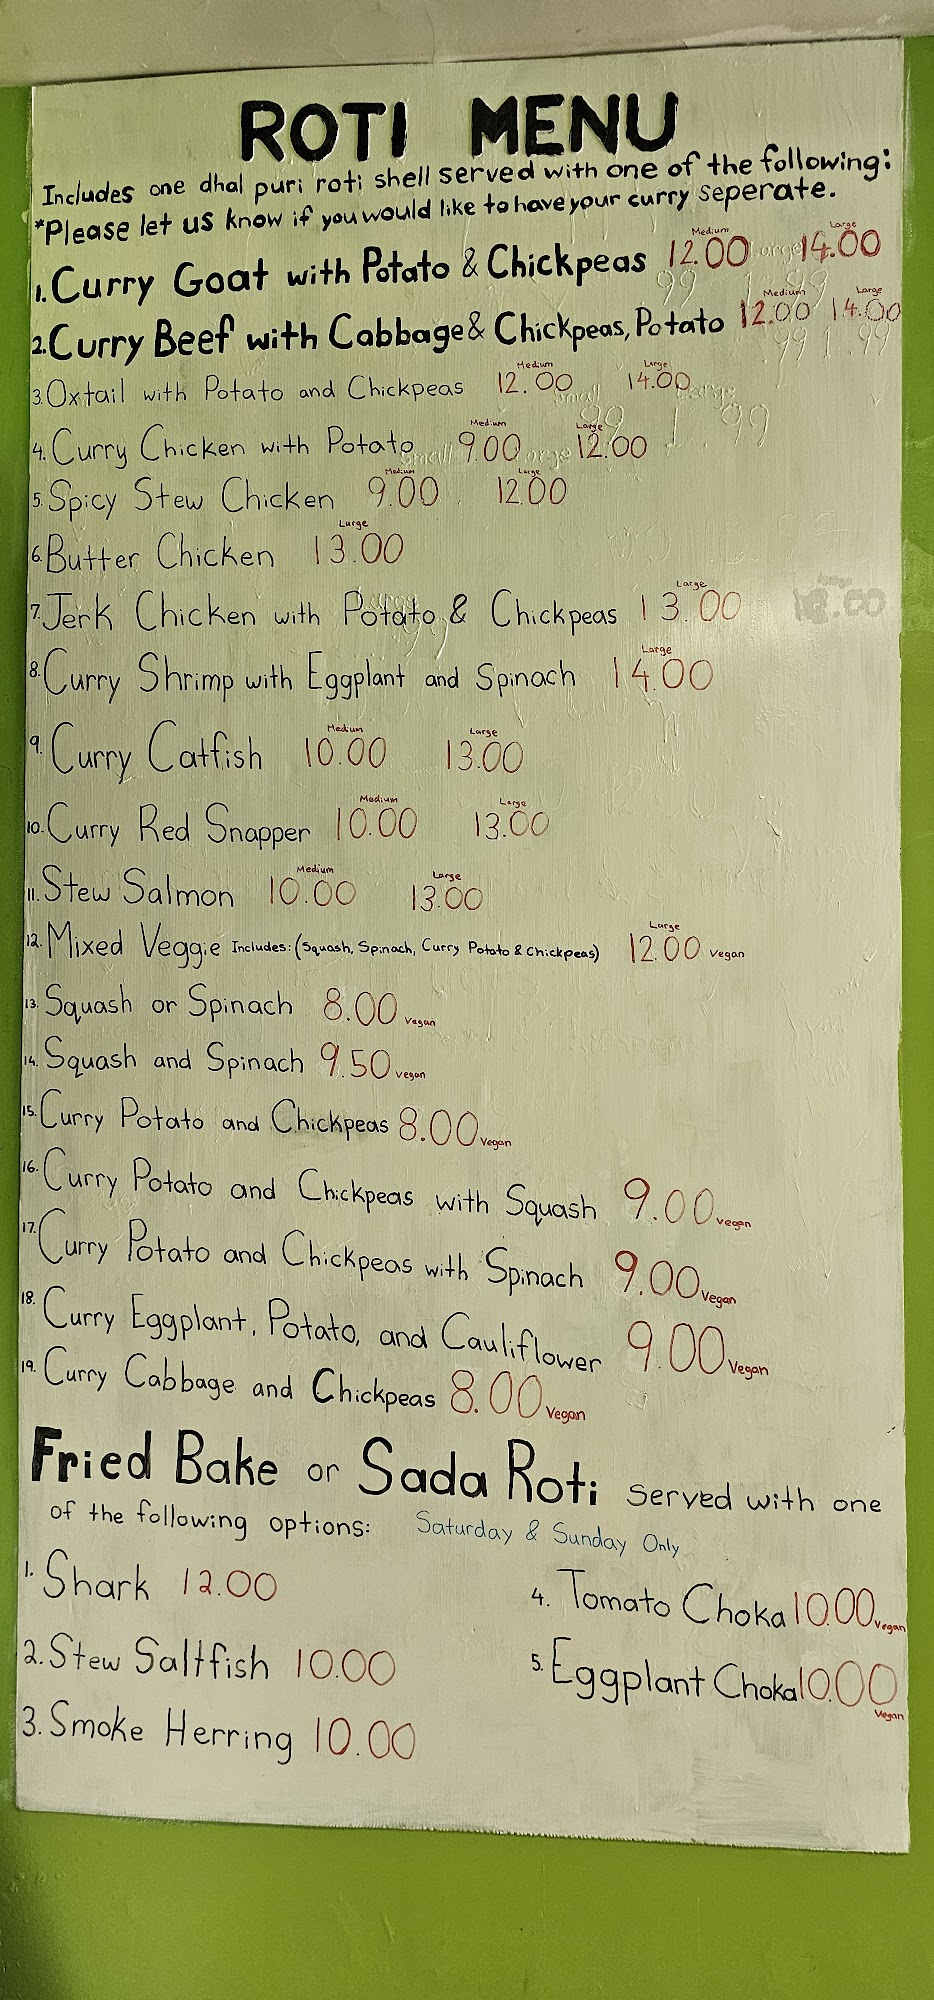 ROTI MENU
Includes one dhal puri roti shell served with one of the following:
*Please let us know if you would like to have your curry seperate.
1. Curry Goat with Potato & Chickpeas Medium 12.00 Large 14.00
2. Curry Beef with Cabbage & Chickpeas, Potato Medium 12.00 Large 14.00
3. Oxtail with Potato and Chickpeas Medium 12.00 Large 14.00
4. Curry Chicken with Potato Medium 9.00 Large 12.00
5. Spicy Stew Chicken Medium 9.00 Large 12.00
6. Butter Chicken Large 13.00
7. Jerk Chicken with Potato & Chickpeas Large 13.00
8. Curry Shrimp with Eggplant and Spinach Large 14.00
9. Curry Catfish Medium 10.00 Large 13.00
10. Curry Red Snapper Medium 10.00 Large 13.00
11. Stew Salmon Medium 10.00 Large 13.00
12. Mixed Veggie Includes: (Squash, Spinach, Curry Potato & Chickpeas) Large 12.00 Vegan
13. Squash or Spinach 8.00 Vegan
14. Squash and Spinach 9.50 Vegan
15. Curry Potato and Chickpeas 8.00 Vegan
16. Curry Potato and Chickpeas with Squash 9.00 Vegan
17. Curry Potato and Chickpeas with Spinach 9.00 Vegan
18. Curry Eggplant, Potato, and Cauliflower 9.00 Vegan
19. Curry Cabbage and Chickpeas 8.00 Vegan
Fried Bake or Sada Roti Served with one
of the following options: Saturday & Sunday Only
1. Shark 12.00
2. Stew Saltfish 10.00
3. Smoke Herring 10.00
4. Tomato Choka 10.00 Vegan
5. Eggplant Choka 10.00 Vegan